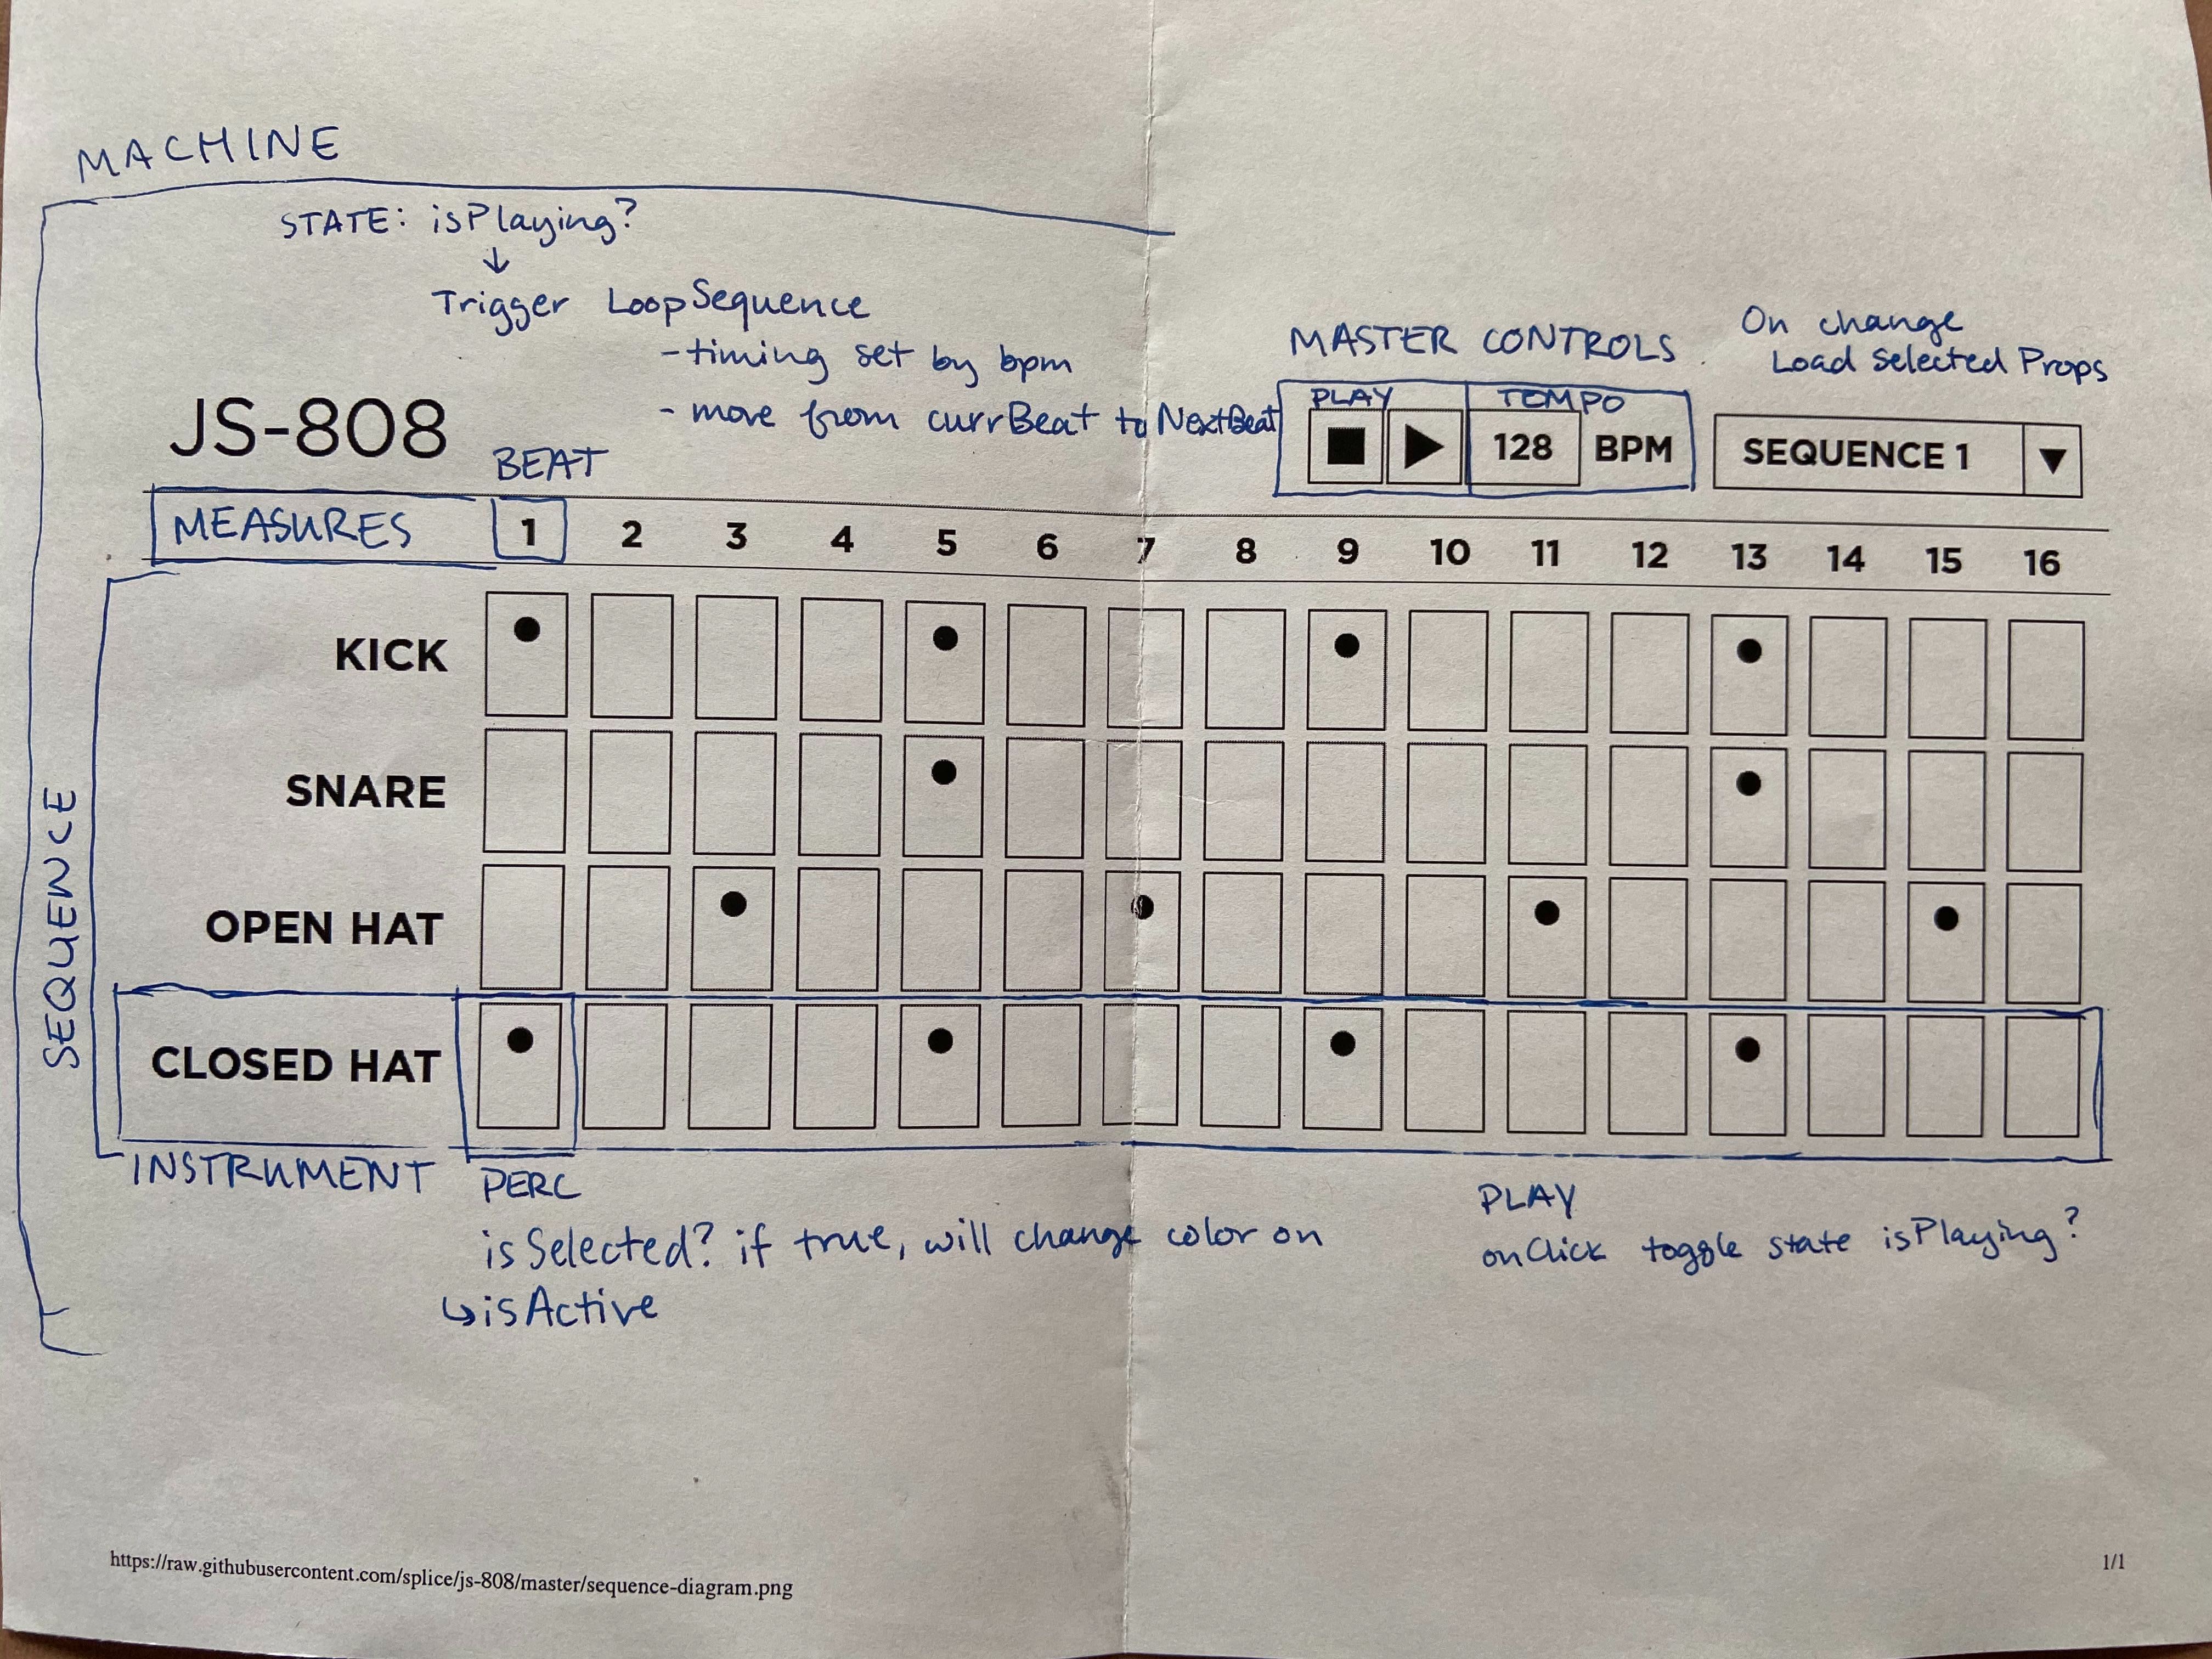 MACHINE
STATE: isPlaying?
↓
Trigger LoopSequence
- timing set by bpm
- move from currBeat to NextBeat
MASTER CONTROLS
On change
Load Selected Props
JS-808
BEAT
PLAY TEMPO
128 BPM
SEQUENCE 1 ▼
MEASURES 1 2 3 4 5 6 7 8 9 10 11 12 13 14 15 16
SEQUENCE
KICK
SNARE
OPEN HAT
CLOSED HAT
INSTRUMENT
PERC
isSelected? if true, will change color on
↳isActive
PLAY
onClick toggle state isPlaying?
https://raw.githubusercontent.com/splice/js-808/master/sequence-diagram.png
1/1